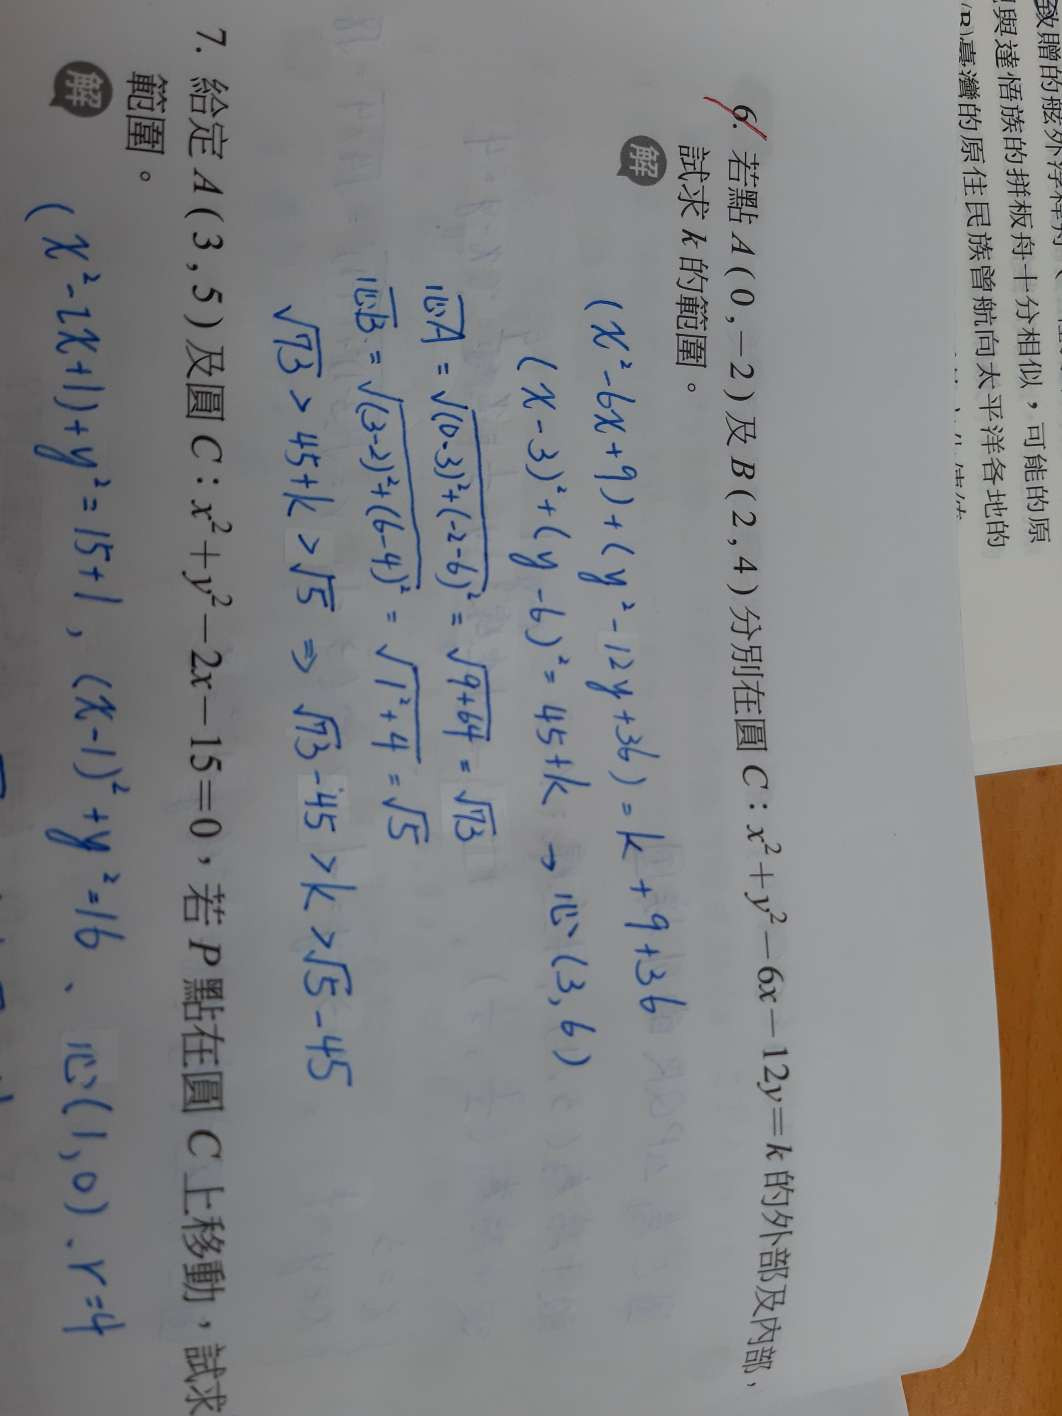 致贈的舷外浮
與達悟族的拼板舟十分相似，可能的原
臺灣的原住民族曾航向太平洋各地的
6. 若點 A(0,-2) 及 B(2,4) 分別在圓 C：x²+y²-6x-12y=k 的外部及內部，
試求 k 的範圍。
解
(x²-6x+9)+(y²-12y+36)=k+9+36
(x-3)²+(y-6)²=45+k → 心(3,6)
心A=√(0-3)²+(-2-6)²=√9+64=√73
心B=√(3-2)²+(6-4)²=√1²+4=√5
√73>45+k>√5 ⇒ √73-45>k>√5-45
7. 給定 A(3,5) 及圓 C：x²+y²-2x-15=0，若 P 點在圓 C 上移動，試求
範圍。
解
(x²-2x+1)+y²=15+1，(x-1)²+y²=16、心(1,0)、r=4